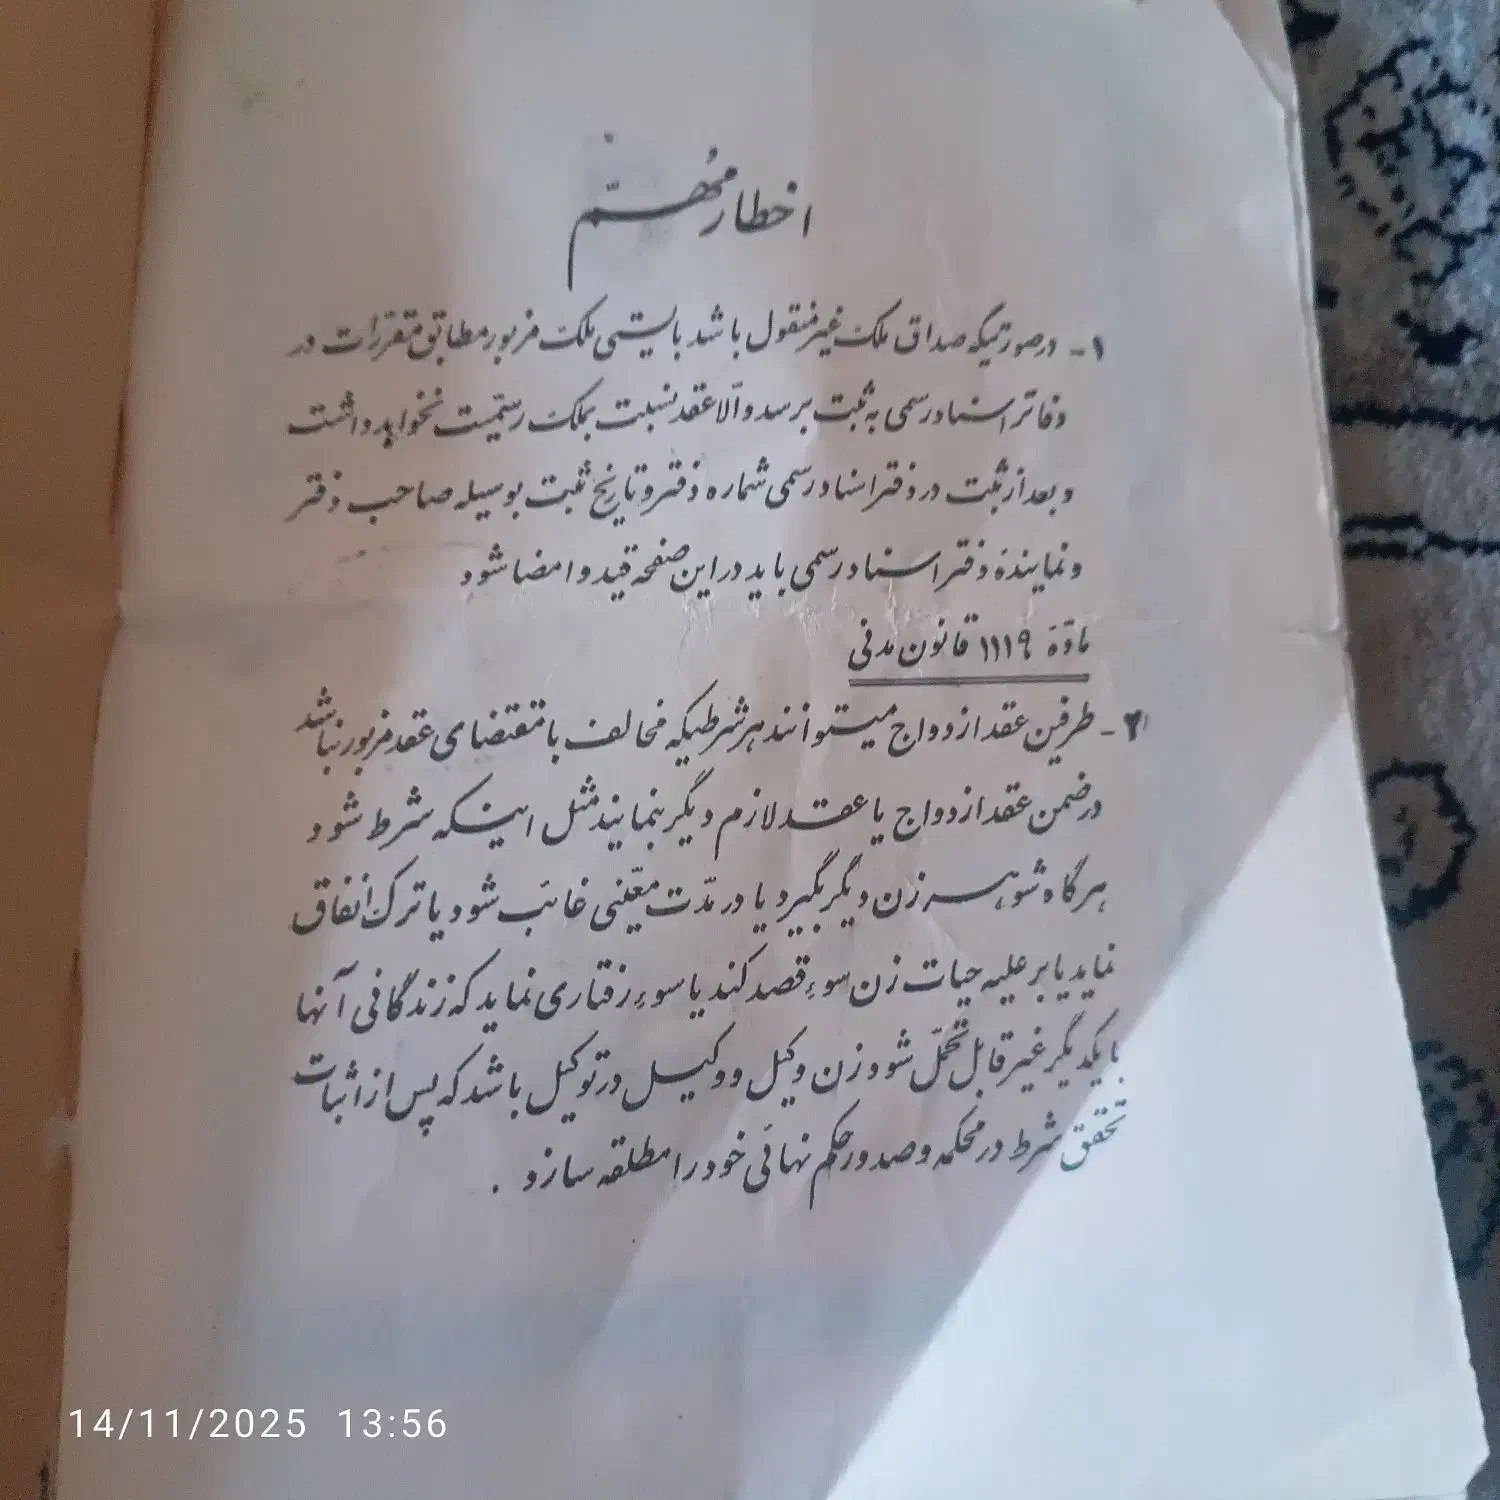 اخطار مهمّ
۱- درصورتیکه صداق ملک غیرمنقول باشد بایستی ملک مزبور مطابق مقرّرات در
دفاتر اسناد رسمی به ثبت برسد و الّا عقد نسبت بملک رسمّیت نخواهد داشت
و بعد از ثبت در دفتر اسناد رسمی شماره دفتر و تاریخ ثبت بوسیله صاحب دفتر
و نمایندهٔ دفتر اسناد رسمی باید در این صفحه قید و امضا شود
مادّهٔ ۱۱۱۹ قانون مدنی
۲- طرفین عقد ازدواج میتوانند هر شرطیکه مخالف با مقتضای عقد مزبور نباشد
در ضمن عقد ازدواج یا عقد لازم دیگر بنمایند مثل اینکه شرط شود
هرگاه شوهر زن دیگر بگیرد یا در مدّت معیّنی غائب شود یا ترک انفاق
نماید یا بر علیه حیات زن سوءقصد کند یا سوءرفتاری نماید که زندگانی آنها
با یکدیگر غیر قابل تحمّل شود زن وکیل و وکیل در توکیل باشد که پس از اثبات
تحقق شرط در محکمه و صدور حکم نهائی خود را مطلقه سازد .
14/11/2025 13:56